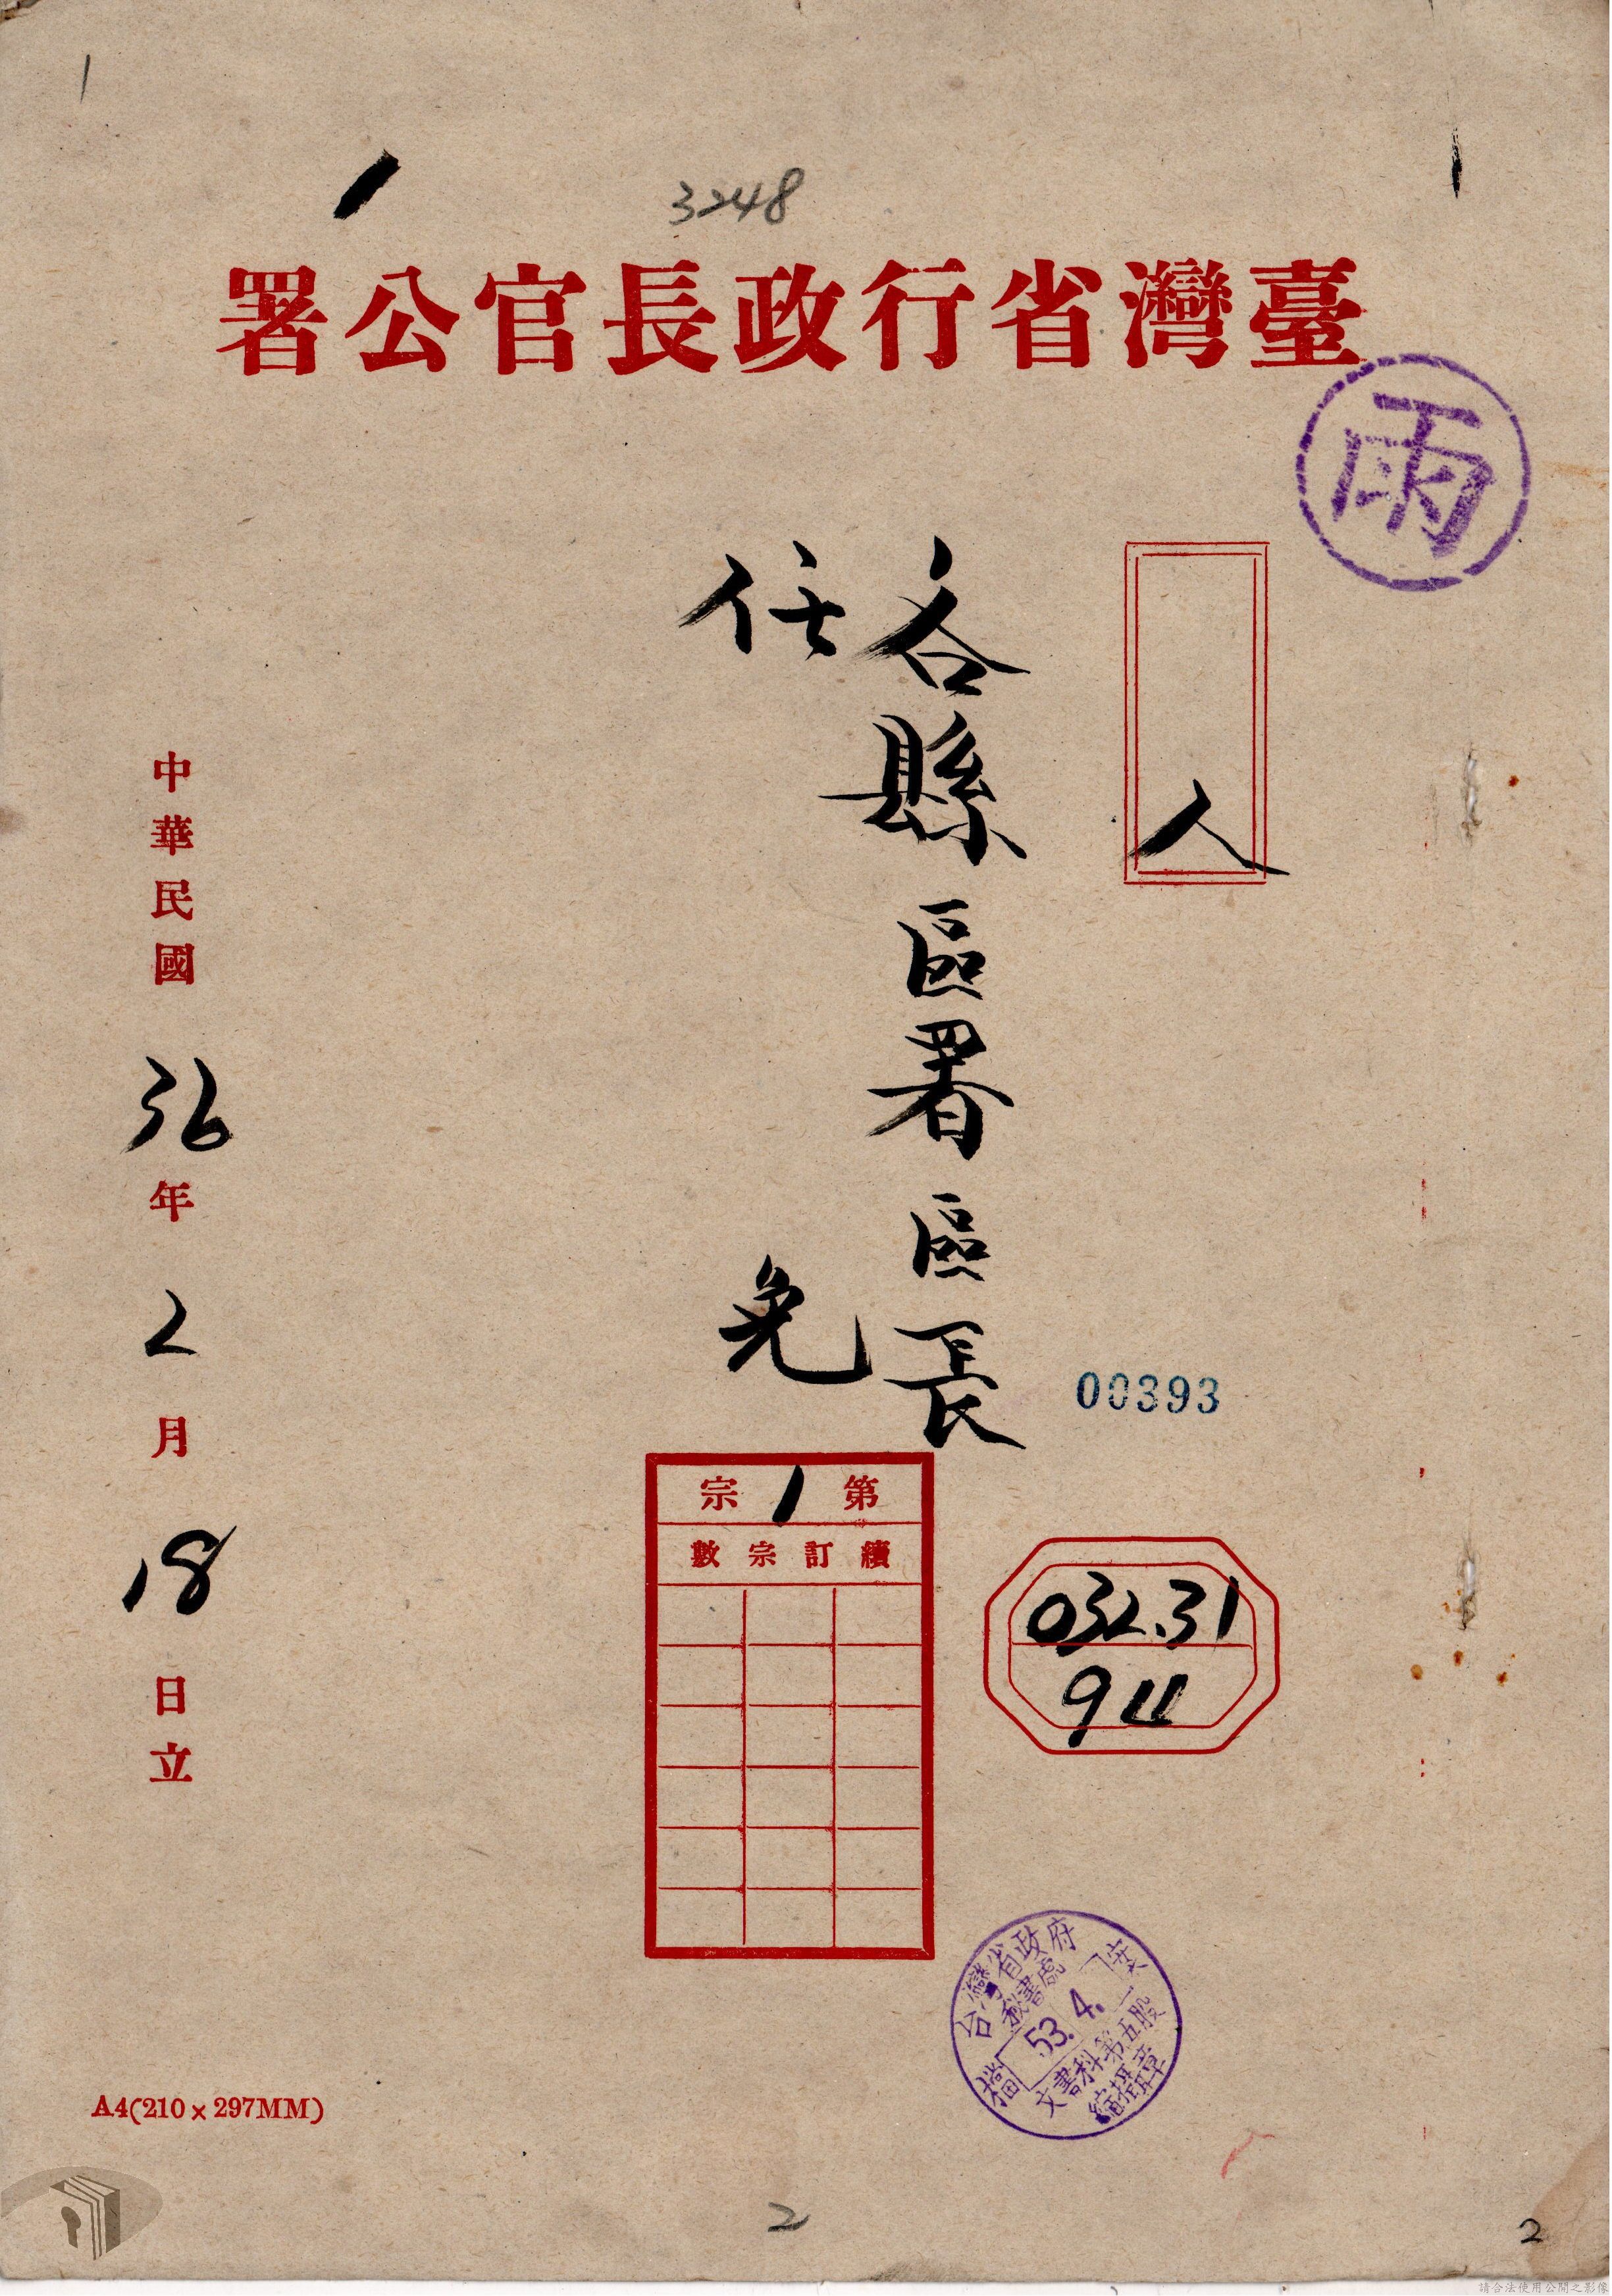 3248
臺灣省行政長官公署
雨
人
各縣區署區長
任免
00393
第1宗
續訂宗數
032.31
911
中華民國36年2月18日立
台灣省政府
秘書處
53.4.
文書科第五股
檔案
縮攝章
A4(210×297MM)
2
2
請合法使用公開之影像